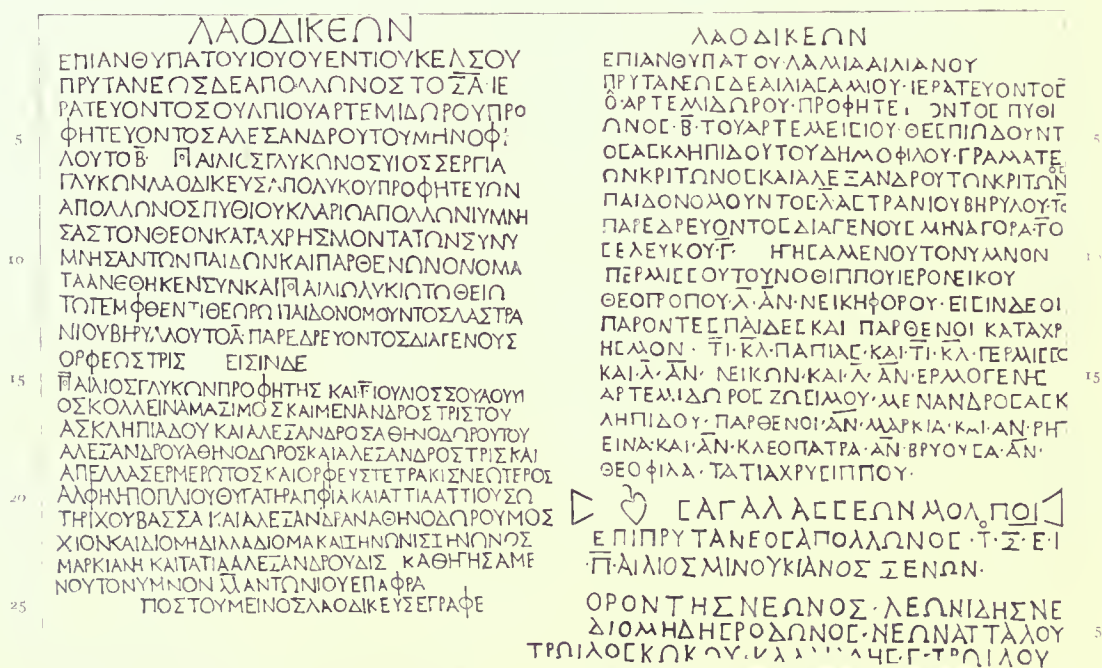 ΛΑΟΔΙΚΕΩΝ
ΕΠΙΑΝΘΥΠΑΤΟΥΙΟΥΟΥΕΝΤΙΟΥΚΕΛΣΟΥ
ΠΡΥΤΑΝΕΩΣΔΕΑΠΟΛΛΩΝΟΣΤΟΞΑ·ΙΕ
ΡΑΤΕΥΟΝΤΟΣΟΥΛΠΙΟΥΑΡΤΕΜΙΔΩΡΟΥΠΡΟ
5 ΦΗΤΕΥΟΝΤΟΣΑΛΕΞΑΝΔΡΟΥΤΟΥΜΗΝΟΦΙ
ΛΟΥΤΟΒ· ΠΑΙΛΙΟΣΓΛΥΚΩΝΟΣΥΙΟΣΣΕΡΓΙΑ
ΓΛΥΚΩΝΛΑΟΔΙΚΕΥΣΑΠΟΛΥΚΟΥΠΡΟΦΗΤΕΥΩΝ
ΑΠΟΛΛΩΝΟΣΠΥΘΙΟΥΚΛΑΡΙΩΑΠΟΛΛΩΝΙΥΜΝΗ
ΣΑΣΤΟΝΘΕΟΝΚΑΤΑΧΡΗΣΜΟΝΤΑΤΩΝΣΥΝΥ
10 ΜΝΗΣΑΝΤΩΝΠΑΙΔΩΝΚΑΙΠΑΡΘΕΝΩΝΟΝΟΜΑ
ΤΑΑΝΕΘΗΚΕΝΣΥΝΚΑΙΠΑΙΛΙΩΛΥΚΙΩΤΩΘΕΙΩ
ΤΩΠΕΜΦΘΕΝΤΙΘΕΩΡΩΠΑΙΔΟΝΟΜΟΥΝΤΟΣΛΑΣΤΡΑ
ΝΙΟΥΒΗΡΥΛΛΟΥΤΟΑ ΠΑΡΕΔΡΕΥΟΝΤΟΣΔΙΑΓΕΝΟΥΣ
ΟΡΦΕΩΣΤΡΙΣ ΕΙΣΙΝΔΕ
15 ΠΑΙΛΙΟΣΓΛΥΚΩΝΠΡΟΦΗΤΗΣ ΚΑΙΤΙΟΥΛΙΟΣΣΟΥΛΟΥΜ
ΟΣΚΟΛΛΕΙΝΑΜΑΞΙΜΟΣΚΑΙΜΕΝΑΝΔΡΟΣΤΡΙΣΤΟΥ
ΑΣΚΛΗΠΙΑΔΟΥΚΑΙΑΛΕΞΑΝΔΡΟΣΑΘΗΝΟΔΩΡΟΥΤΟΥ
ΑΛΕΞΑΝΔΡΟΥΑΘΗΝΟΔΩΡΟΣΚΑΙΑΛΕΞΑΝΔΡΟΣΤΡΙΣΚΑΙ
ΑΠΕΛΛΑΣΕΡΜΕΡΩΤΟΣΚΑΙΟΡΦΕΥΣΤΕΤΡΑΚΙΣΝΕΩΤΕΡΟΣ
20 ΑΛΦΗΝΠΟΠΛΙΟΥΘΥΓΑΤΗΡΑΠΦΙΑΚΑΙΑΤΤΙΑΑΤΤΙΟΥΣΩ
ΤΗΡΙΧΟΥΒΑΣΣΑΚΑΙΑΛΕΞΑΝΔΡΑΝΑΘΗΝΟΔΩΡΟΥΜΟΣ
ΧΙΟΝΚΑΙΔΙΟΜΗΔΙΛΛΑΔΙΟΜΑΚΑΙΖΗΝΩΝΙΣΖΗΝΩΝΟΣ
ΜΑΡΚΙΑΝΗΚΑΙΤΑΤΙΑΑΛΕΞΑΝΔΡΟΥΔΙΣ ΚΑΘΗΓΗΣΑΜΕ
ΝΟΥΤΟΝΥΜΝΟΝ ΛΑΝΤΩΝΙΟΥΕΠΑΦΡΑ
25 ΠΟΣΤΟΥΜΕΙΝΟΣΛΑΟΔΙΚΕΥΣΕΓΡΑΦΕ
ΛΑΟΔΙΚΕΩΝ
ΕΠΙΑΝΘΥΠΑΤΟΥ·ΛΑΜΙΑΑΙΛΙΑΝΟΥ
ΠΡΥΤΑΝΕΩϹΔΕΑΙΛΙΑϹΑΜΙΟΥ·ΙΕΡΑΤΕΥΟΝΤΟϹ
Ο·ΑΡΤΕΜΙΔΩΡΟΥ·ΠΡΟΦΗΤΕΥΟΝΤΟϹ ΠΥΘΙ
ΩΝΟϹ·Β·ΤΟΥΑΡΤΕΜΕΙϹΙΟΥ·ΘΕϹΠΙΩΔΟΥΝΤ
ΟϹΑϹΚΛΗΠΙΔΟΥΤΟΥΔΗΜΟΦΙΛΟΥ·ΓΡΑΜΑΤΕ
ΩΝΚΡΙΤΩΝΟϹΚΑΙΑΛΕΞΑΝΔΡΟΥΤΩΝΚΡΙΤΩΝΟϹ
ΠΑΙΔΟΝΟΜΟΥΝΤΟϹ·Λ·ΑϹΤΡΑΝΙΟΥΒΗΡΥΛΟΥ·ΤΟ
ΠΑΡΕΔΡΕΥΟΝΤΟϹΔΙΑΓΕΝΟΥϹΜΗΝΑΓΟΡΑ·ΤΟ
ϹΕΛΕΥΚΟΥ·Γ· ΗΓΗϹΑΜΕΝΟΥΤΟΝΥΜΝΟΝ
ΠΕΡΜΙϹϹΟΥΤΟΥΝΟΘΙΠΠΟΥΙΕΡΟΝΕΙΚΟΥ
ΘΕΟΠΡΟΠΟΥ·Λ·ΑΝ·ΝΕΙΚΗΦΟΡΟΥ·ΕΙϹΙΝΔΕΟΙ
ΠΑΡΟΝΤΕϹΠΑΙΔΕϹΚΑΙ ΠΑΡΘΕΝΟΙ ΚΑΤΑΧΡ
ΗϹΜΟΝ· ΤΙ·ΚΛ·ΠΑΠΙΑϹ·ΚΑΙ·ΤΙ·ΚΛ·ΠΕΡΜΙϹϹΟϹ
ΚΑΙ·Λ·ΑΝ· ΝΕΙΚΩΝ·ΚΑΙ·Λ·ΑΝ·ΕΡΜΟΓΕΝΗϹ 15
ΑΡΤΕΜΙΔΩΡΟϹ ΖΩϹΙΜΟΥ·ΜΕΝΑΝΔΡΟϹΑϹΚ
ΛΗΠΙΔΟΥ·ΠΑΡΘΕΝΟΙ·ΑΝ·ΜΑΡΚΙΑ·ΚΑΙ·ΑΝ·ΡΗΓ
ΕΙΝΑ·ΚΑΙ·ΑΝ·ΚΛΕΟΠΑΤΡΑ·ΑΝ·ΒΡΥΟΥϹΑ·ΑΝ·
ΘΕΟΦΙΛΑ·ΤΑΤΙΑΧΡΥϹΙΠΠΟΥ·
ϹΑΓΑΛΑϹϹΕΩΝΜΟΛΠΟΙ
ΕΠΙΠΡΥΤΑΝΕΟϹΑΠΟΛΛΩΝΟϹ·Τ·Ξ·Ε·Ι
·Π·ΑΙΛΙΟΣΜΙΝΟΥΚΙΑΝΟΣ ΞΕΝΩΝ·
ΟΡΟΝΤΗΣΝΕΩΝΟΣ·ΛΕΩΝΙΔΗΣΝΕ
ΔΙΟΜΗΔΗϹΡΟΔΩΝΟϹ·ΝΕΩΝΑΤΤΑΛΟΥ 5
ΤΡΩΙΛΟϹΚΩΚΟΥ ΤΡΩΙΛΟΥ